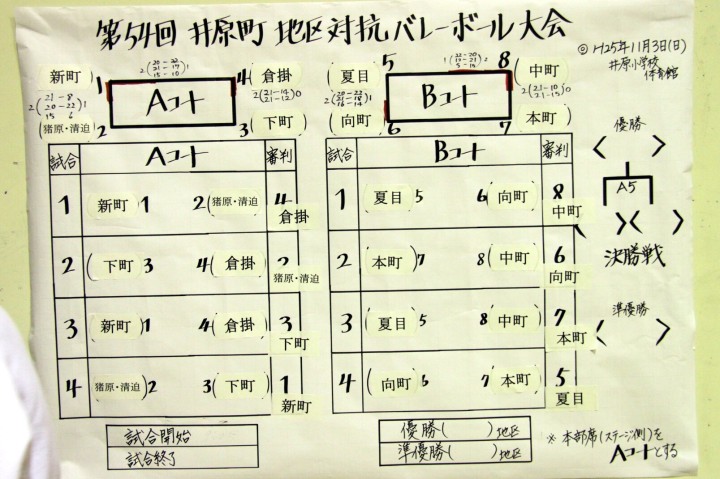 第54回 井原町 地区対抗バレーボール大会
◎H25年11月3日(日)
井原小学校
体育館
新町 1
2(20-22 21-17 15-10)1
4 倉掛
2(21-8 20-22 15 6)1
Aコート
2(21-14 21-12)0
猪原・清迫 2
3 下町
夏目 5
8 中町
Bコート
2(21-10 21-15)0
向町 6
7 本町
試合 Aコート 審判
1 新町 1 2 (猪原・清迫) 4 倉掛
2 (下町 3 4 (倉掛) 2 猪原・清迫
3 (新町) 1 4 (倉掛) 3 下町
4 猪原・清迫) 2 3 (下町) 1 新町
試合 Bコート 審判
1 夏目 5 6 (向町) 8 中町
2 (本町) 7 8 (中町) 6 向町
3 (夏目 5 8 (中町) 7 本町
4 (向町) 6 7 (本町) 5 夏目
優勝
A5
決勝戦
準優勝
試合開始
試合終了
優勝( )地区
準優勝( )地区
※ 本部席(ステージ側)を
Aコートとする